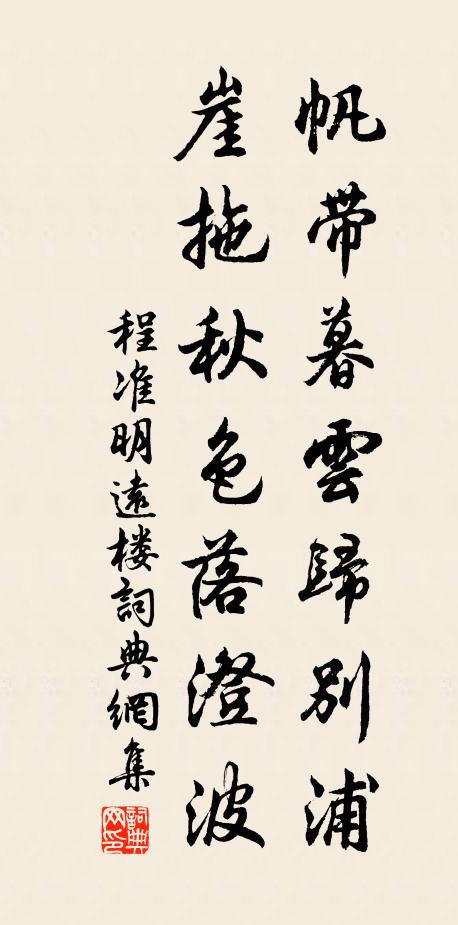 帆帶暮雲歸別浦
崖拖秋色落澄波
程准明遠樓詞典網集
詞典網印